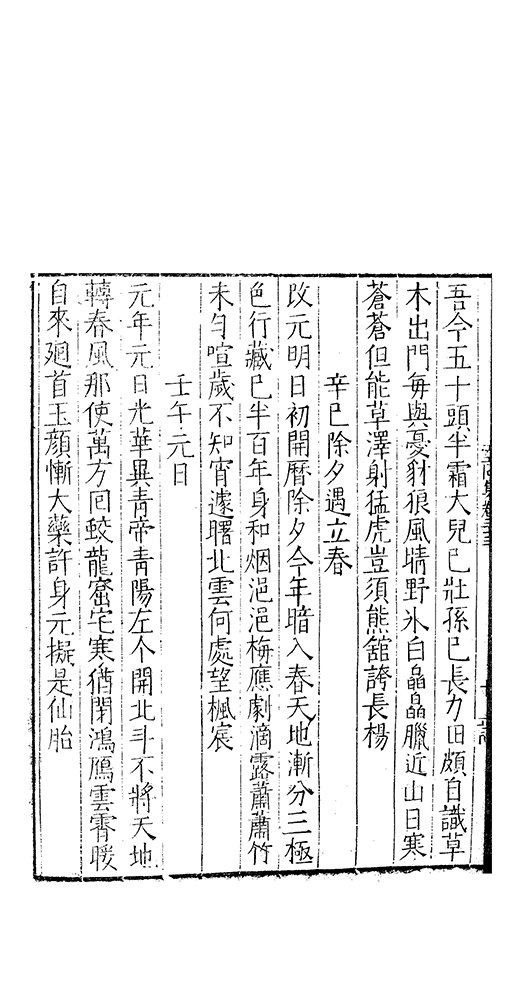 吾今五十頭半霜大兒已壯孫已長力田頗自識草
木出門每與憂豺狼風晴野外白皛皛臘近山日寒
蒼蒼但能草澤射猛虎豈須熊舘誇長楊
辛巳除夕遇立春
改元明日初開曆除夕今年暗入春天地漸分三極
色行藏已半百年身和烟浥浥梅應劇滴露蕭蕭竹
未勻喧歲不知宵遽曙北雲何處望楓宸
壬午元日
元年元日光華異青帝青陽左个開北斗不將天地
轉春風那使萬方回蛟龍窟宅寒猶閉鴻鴈雲霄暖
自來廻首玉顏慚大藥許身元擬是仙胎